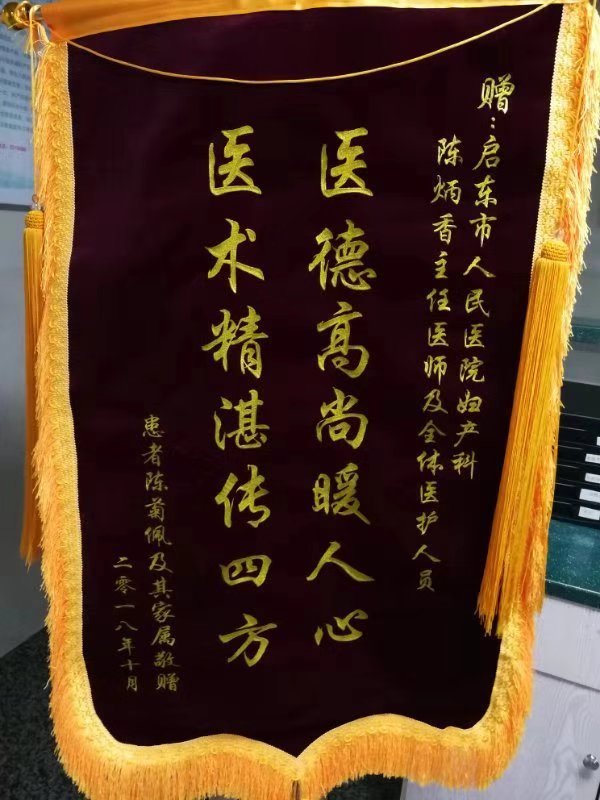 赠:启东市人民医院妇产科
陈炳香主任医师及全体医护人员
医德高尚暖人心
医术精湛传四方
患者陈菊佩及其家属敬赠
二零一八年十月